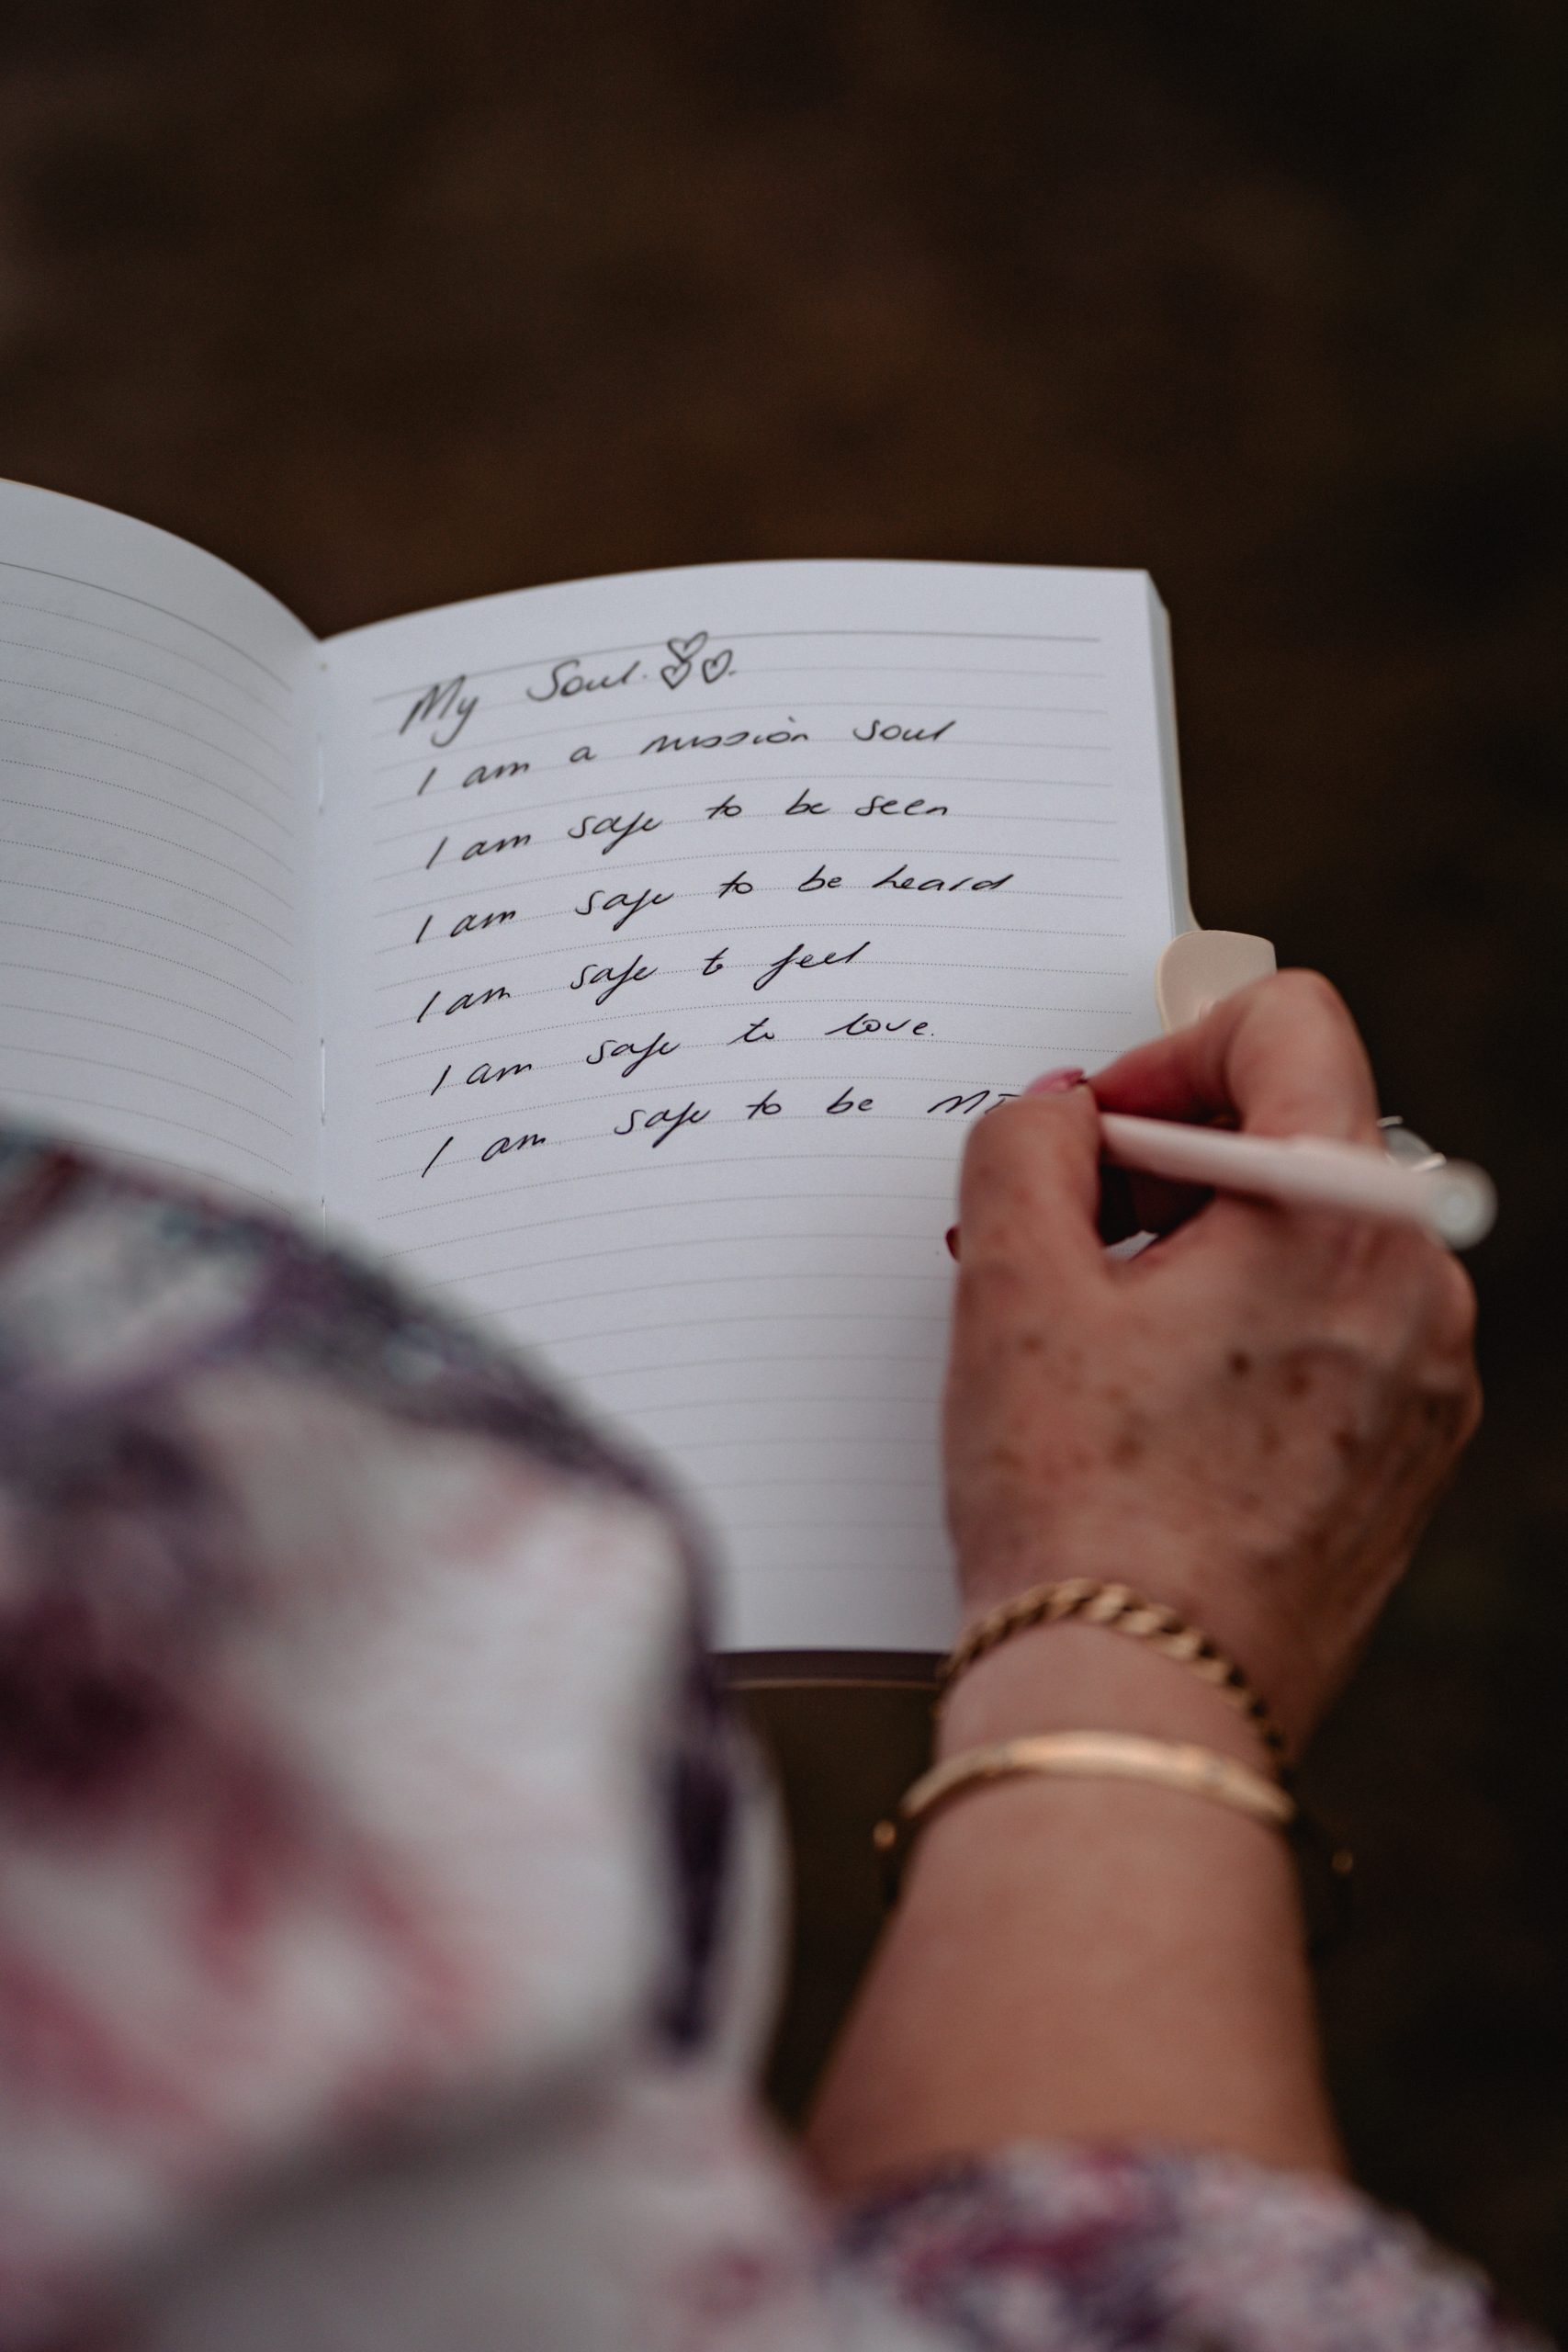 My Soul.
I am a mission soul
I am safe to be seen
I am safe to be heard
I am safe to feel
I am safe to love.
I am safe to be